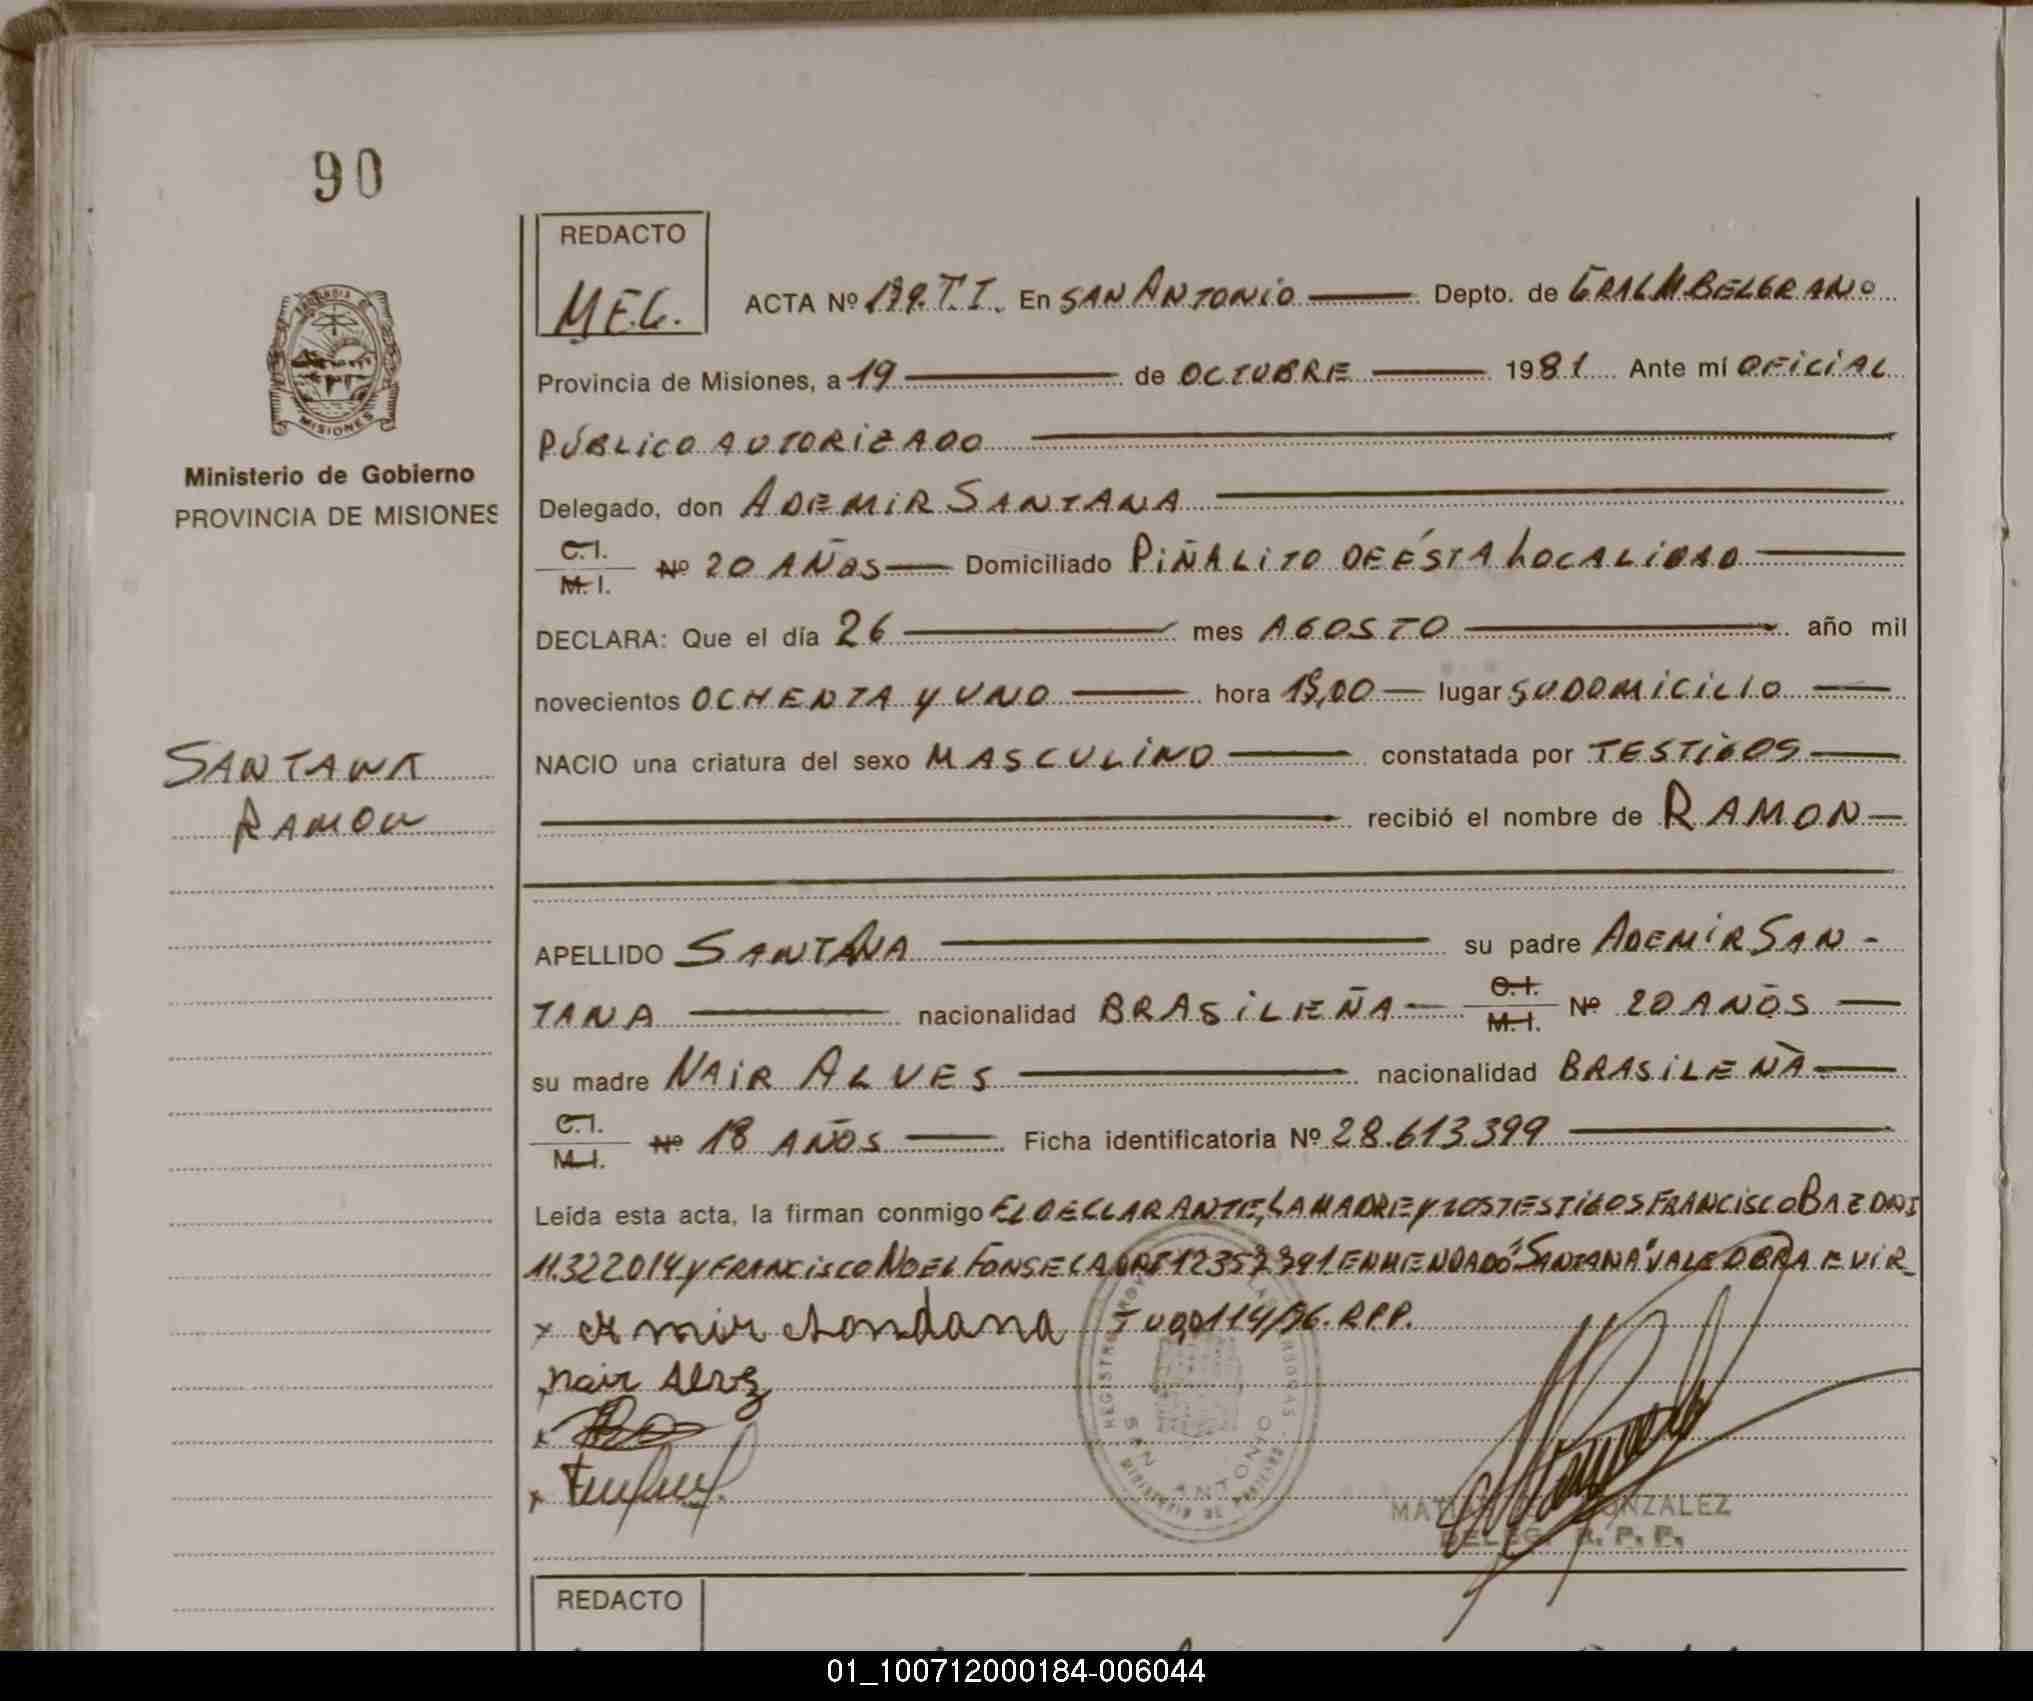 90
REDACTO
M.E.G.
ACTA Nº 179.T.I. En SAN ANTONIO Depto. de GRAL M. BELGRANO
MISIONES
Provincia de Misiones, a 19 de OCTUBRE 1981 Ante mí OFICIAL
PÚBLICO AUTORIZADO
Ministerio de Gobierno
PROVINCIA DE MISIONES
Delegado, don ADEMIR SANTANA
C.I.
M.I. Nº 20 AÑOS Domiciliado PIÑALITO DE ÉSTA LOCALIDAD
DECLARA: Que el día 26 mes AGOSTO año mil
novecientos OCHENTA Y UNO hora lugar SU DOMICILIO
SANTANA
RAMON
NACIO una criatura del sexo MASCULINO constatada por TESTIGOS
recibió el nombre de RAMON
APELLIDO SANTANA su padre ADEMIR SAN-
TANA nacionalidad BRASILEÑA C.I. M.I. Nº 20 AÑOS
su madre NAIR ALVES nacionalidad BRASILEÑA
C.I.
M.I. Nº 18 AÑOS Ficha identificatoria Nº 28.613.399
Leída esta acta, la firman conmigo EL DECLARANTE, LA MADRE Y LOS TESTIGOS FRANCISCO BAZONI
11.322014 Y FRANCISCO NOEL FONSECA ENMENDADO "SANTANA" VALE OBRA E VIR-
TUD 114/76. R.P.P.
nair
SAN ANTONIO
GONZALEZ
DELEG. R. P. P.
REDACTO
01_100712000184-006044